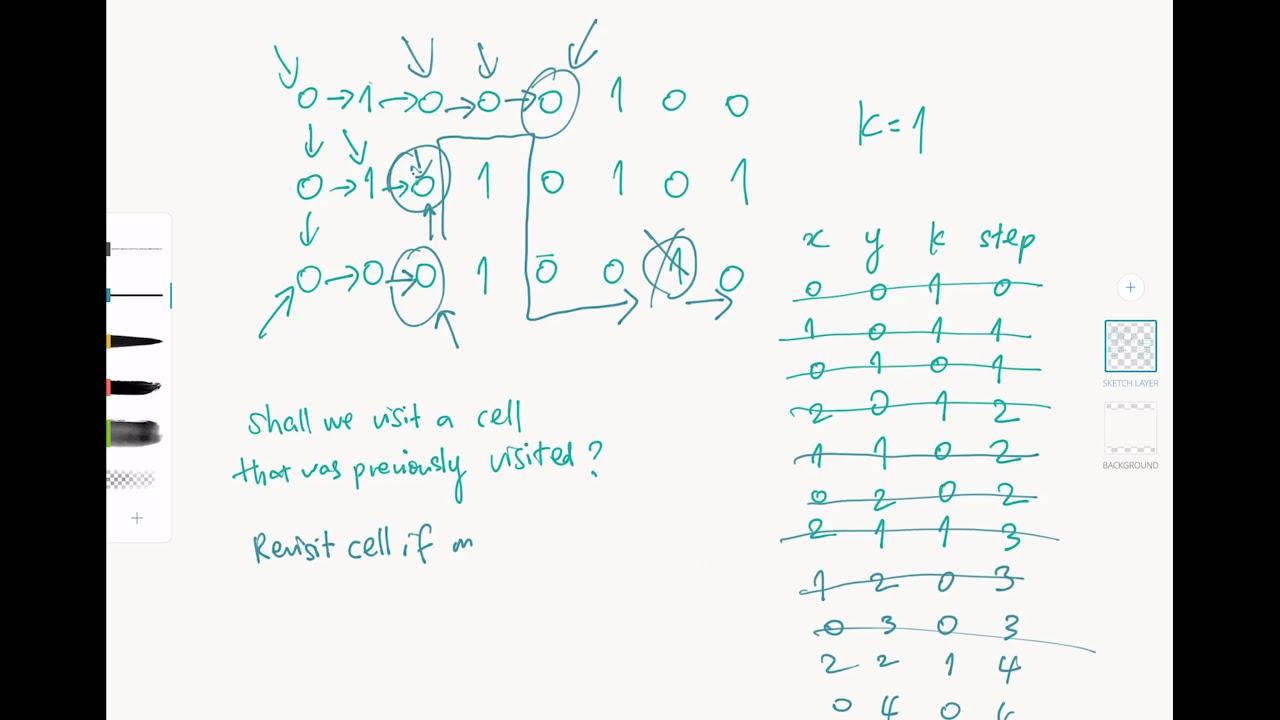 0 → 1 → 0 → 0 → 0 1 0 0
k = 1
0 → 1 → 0 1 0 1 0 1
x y k step
0 → 0 → 0 1 0 0 1 0
0 0 1 0
1 0 1 1
0 1 0 1
2 0 1 2
Shall we visit a cell
that was previously visited?
1 1 0 2
0 2 0 2
2 1 1 3
Revisit cell if m
1 2 0 3
0 3 0 3
2 2 1 4
0 4 0
SKETCH LAYER
BACKGROUND